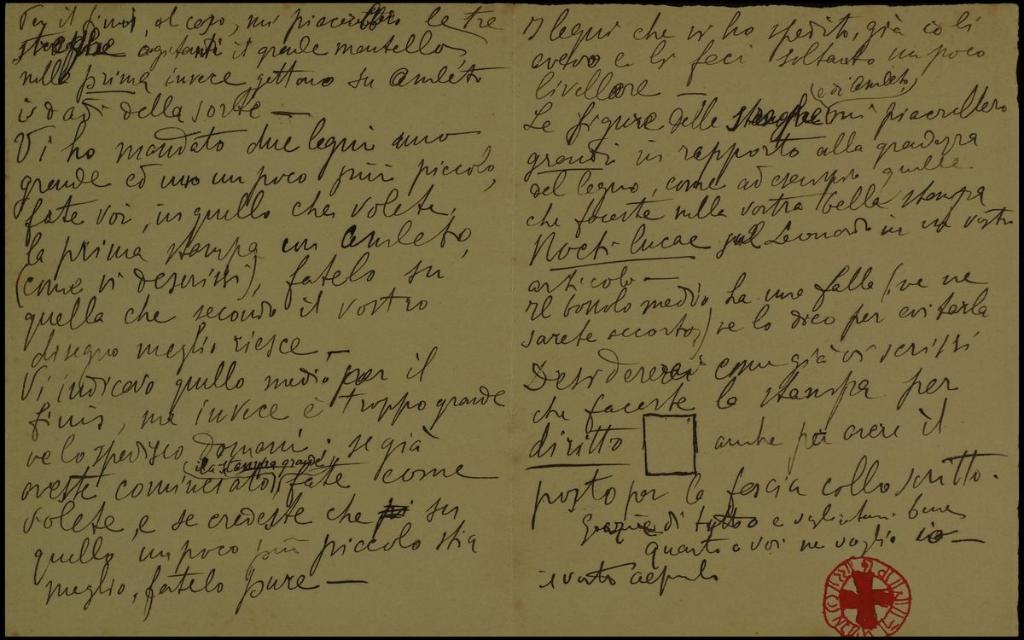 Per il finis, al caso, mi piacerebbe le tre
streghe agitanti il grande mantello,
nella prima invece gettono su Amleto
i dadi della sorte —
Vi ho mandato due legni uno
grande ed uno un poco più piccolo,
fate voi, in quello che volete,
la prima stampa con Amleto,
(come vi descrissi), fatelo su
quella che secondo il vostro
disegno meglio riesce —
Vi indicavo quello medio per il
finis, ma invece è troppo grande
ve lo spedisco domani; se già
(la stampa grande)
aveste cominciato, fate come
volete, e se credeste che su
quello un poco più piccolo stia
meglio, fatelo pure —
I legni che vi ho spedito, già io li
avevo e li feci soltanto un poco
livellare —
(e di Amleto)
Le figure delle streghe mi piacerebbero
grandi in rapporto alla grandezza
del legno, come ad esempio quelle
che faceste nella vostra bella stampa
Nocti lucae sul Leonardo in un vostro
articolo —
Il bossolo medio ha una falla (ve ne
sarete accorto,) ve lo dico per evitarla
Desidererei come già vi scrissi
che faceste la stampa per
diritto anche per avere il
posto per la fascia collo scritto.
Grazie di tutto e vogliatemi bene
quanto a voi ne voglio io —
il vostro